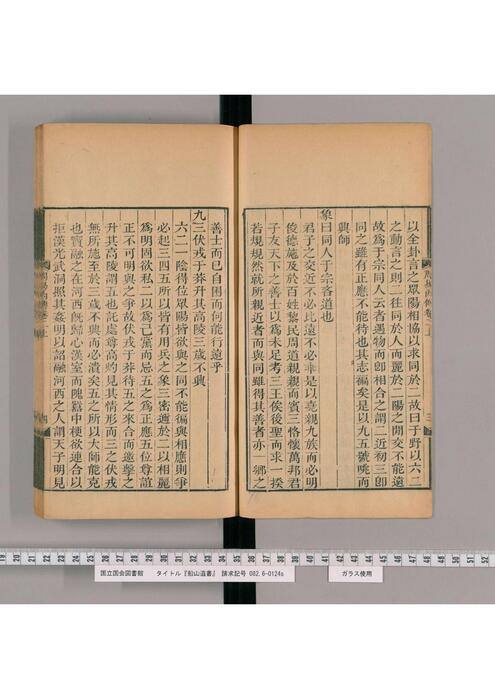 以全卦言之眾陽相協以求同於二故曰于野以六二
之動言之則二往同於人而麗於二陽之閒交不能遠
故爲于宗同人云者遇物而卽相合之謂二近初三卽
同之雖有正應不能待也其志褊矣是以九五號咷而
興師
象曰同人于宗吝道也
君子之交近不必比遠不必乖是以堯親九族而必明
俊德施及於百姓黎民周道親親而賓三恪懷萬邦君
子友天下之善士以爲未足考三王俟後聖而求一揆
若規規然就所親近者而與同雖得其善者亦一鄉之
善士而已自困而何能行遠乎
九三伏戎于莽升其高陵三歲不興
六二一陰得位眾陽皆欲與之同不能徧與相應則爭
必起三四五所以皆有用兵之象三密邇於二以相麗
爲明固欲私二以爲己黨而忌五之爲正應五位尊誼
正不可明與之爭故伏戎于莽待五之來合而邀擊之
升其高陵謂五也託處尊高灼見其情形而三之伏戎
無所施至於三歲不興而必潰矣五之所以大師能克
也竇融之在河西旣歸心漢室而隗囂中梗欲連合以
拒漢光武洞振其姦明以詔融河西之人謂天子明見
国立国会図書館 タイトル『船山遺書』 請求記号 082.6-0124s
ガラス使用